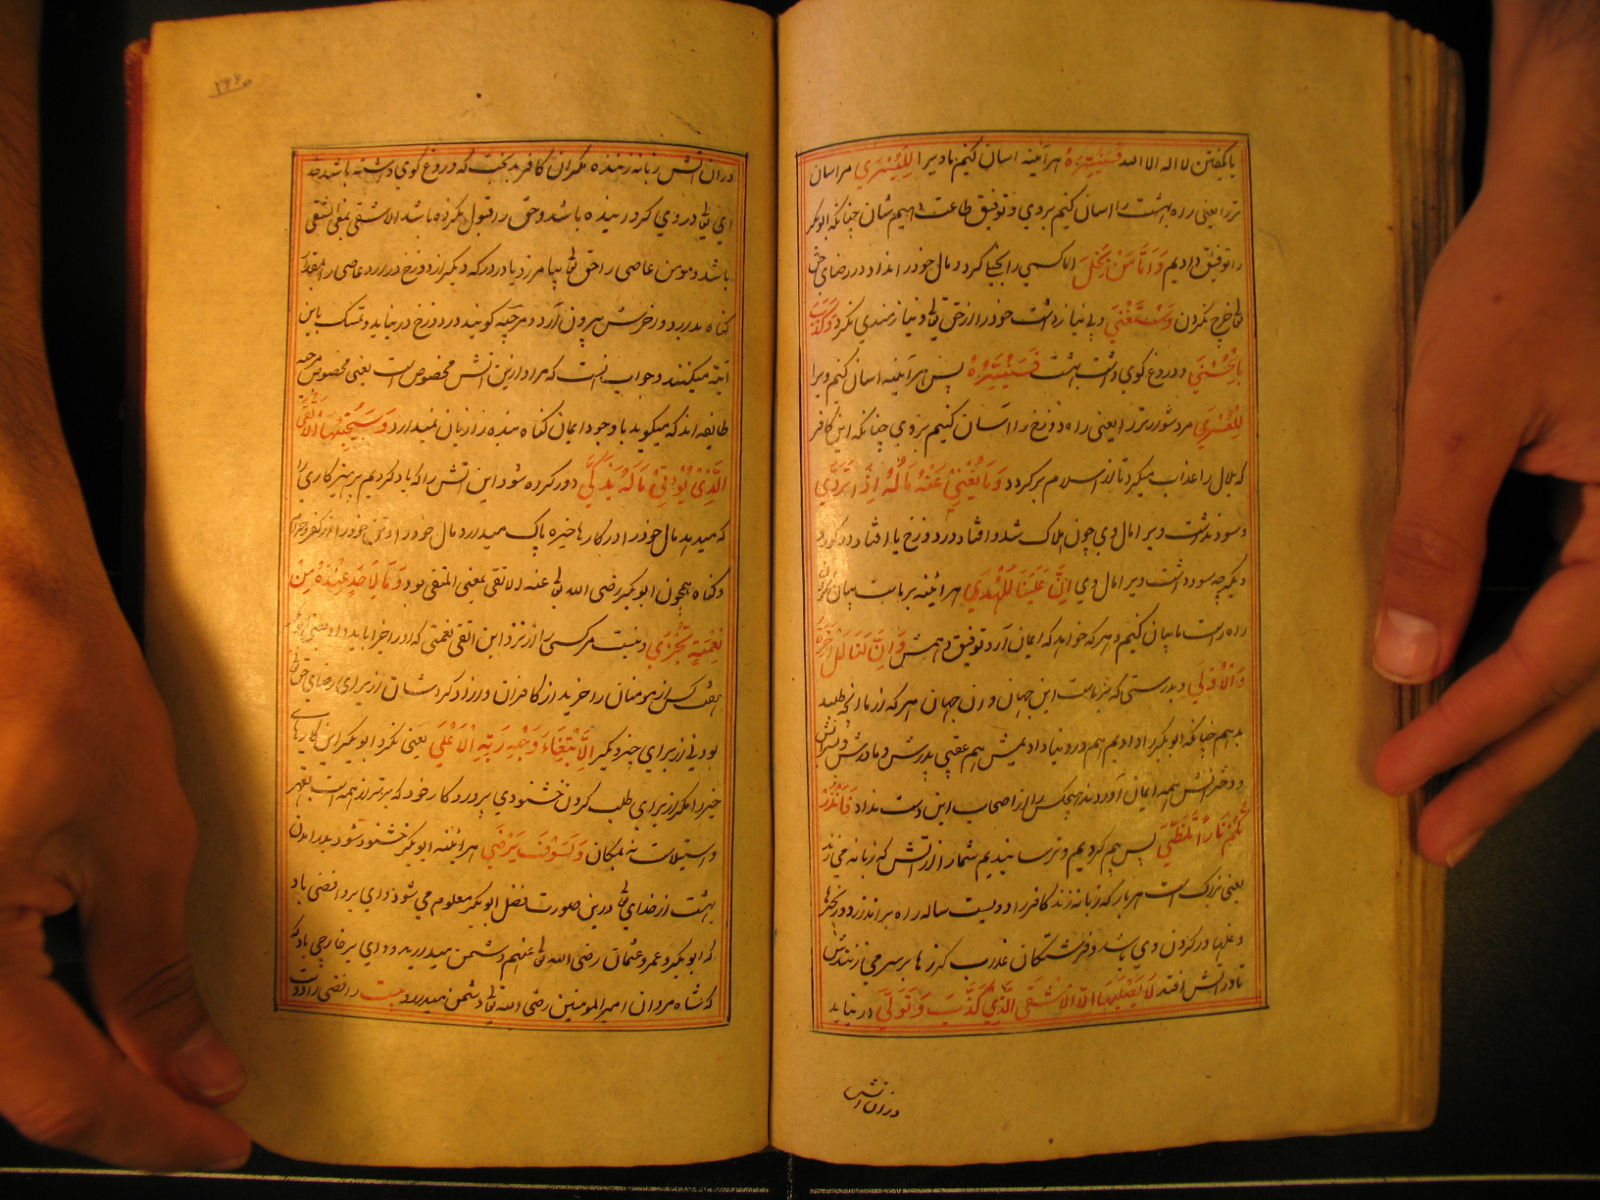 یا بگفتن لا اله الا الله فَسَنُیَسِّرُهُ هر آئینه اسان کنیم یاد یرا لِلْیُسْرَي مر اسان
تر را یعنی راه بهشت را اسان کنیم بر وي و توفیق طاعت دهیم شان چنانکه ابو بکر
را توفیق دادیم وَاَمَّا مَنْ بَخِلَ اما کسی را بخیلی کرد و مال خود را نداد در رضای حق
خرج نکردن وَاسْتَغْنَي و بي نیاز داشت خود را از حق و نیازمندي نکرد وَکَذَّبَ
بِالْحُسْنَي و دروغ کوي داشت بهشت فَسَنُیَسِّرُهُ پس هر آئینه اسان کنیم ویرا
لِلْعُسْرَي مر دشوارتر را یعنی راه دوزخ را اسان کنیم بر وي چنانکه این کافر
که بلال را عذاب میکرد تا از اسلام برکردد وَمَا یُغْنِيْ عَنْهُ مَالُهُ اِذَا تَرَدَّي
و سود نداشت ویرا مال وي چون هلاک شد و افتاد در دوزخ یا افتاد در کور
و یکیرچه سود داشت ویرا مال وي اِنَّ عَلَیْنَا لَلْهُدَي هر آئینه بر ماست بیان کردن
راه راست ما بیان کنیم و هر که خواهد که ایمان آرد توفیق دهمش وَاِنَّ لَنَا لَلْاٰخِرَةَ
وَالْاُوْلَي و بدرستی که مر ماست این جهان و ان جهان هر که از ما انچه طلبد
بدهیم چنانکه ابو بکر را دادیم هم در دنیا دادیمش هم عقبی پدرش و مادرش و پسرانش
و دخترانش همه ایمان آوردند هیچکس را از اصحاب این دست نداد فَاَنْذَرْ
تُکُمْ نَارًا تَلَظَّي پس بیم کردیم و ترسانیدیم شما را از آتش که زبانه می زند
یعنی بزرکست هر بار که زبانه زند کافر را دویست ساله راه براندازد و زنجیرها
و غلها در کردن وي باشد و فرشتکان عذاب کرزها بر سر می زنندش
تا در آتش افتد لَا یَصْلٰیهَا اِلَّا الْاَشْقَي الَّذِيْ کَذَّبَ وَتَوَلَّي در نیاید
در ان آتش
در ان آتش زبانه زننده مکر ان کافر بدبخت که دروغ کوي داشته باشد
وي کردانیده باشد و حق را قبول نکرده باشد الاشقی بمعنی الشقی
باشد و مومن عاصی را حق بیامرزد یا در درکه دیکر از دوزخ در ارد عاصی را بمقدار
کناه بدارد و اخرش بیرون آرد و مرجیه کویند در دوزخ درنیاید و تمسک باین
آیة میکنند و جواب انست که مراد ازین آتش مخصوص است یعنی مخصوص مرجیه
طایفه اند که میکوید با وجود ایمان کناه بنده را زیان نمیدارد وَسَیُجَنَّبُهَا الْاَتْقَي
الَّذِيْ یُؤْتِيْ مَالَهُ یَتَزَکَّي دور کرده شود این آتش را که یاد کردیم پرهیزکاري را
که میدهد مال خود را در کارهاء خیر و پاک میدارد مال خود را و تن خود را از کفر و حرام
و کناه همچون ابو بکر رضی الله عنه الاتقی بمعنی المتقی بود وَمَا لِاَحَدٍ عِنْدَهُ مِنْ
نِعْمَةٍ تُجْزَي و نیست مر کسی را از نزد این اتقی نعمتی که او را جزا باید داد یعنی ابو بکر
هفت کس از مومنان را خرید از کافران و ازاد کرد شان از براي رضای حق
بود نی از براي چیز دیکر اِلَّا ابْتِغَاءَ وَجْهِ رَبِّهِ الْاَعْلَي یعنی نکرد ابو بکر این کارهاي
خیر را مکر از براي طلب کردن خشنودي پروردکار خود که برتر از همه است بقهر
و استیلا نه بمکان وَلَسَوْفَ یَرْضَي هر آئینه ابو بکر خشنود شود بدر امدن
بهشت از خداي درین صورت فضل ابو بکر معلوم می شود واي بر رافضی باد
که ابو بکر و عمر و عثمان رضی الله عنهم دشمن میدارد و واي بر خارجی باد که
که شاه مردان امیر المومنین رضی الله دشمن میدارد رافضی را دوست